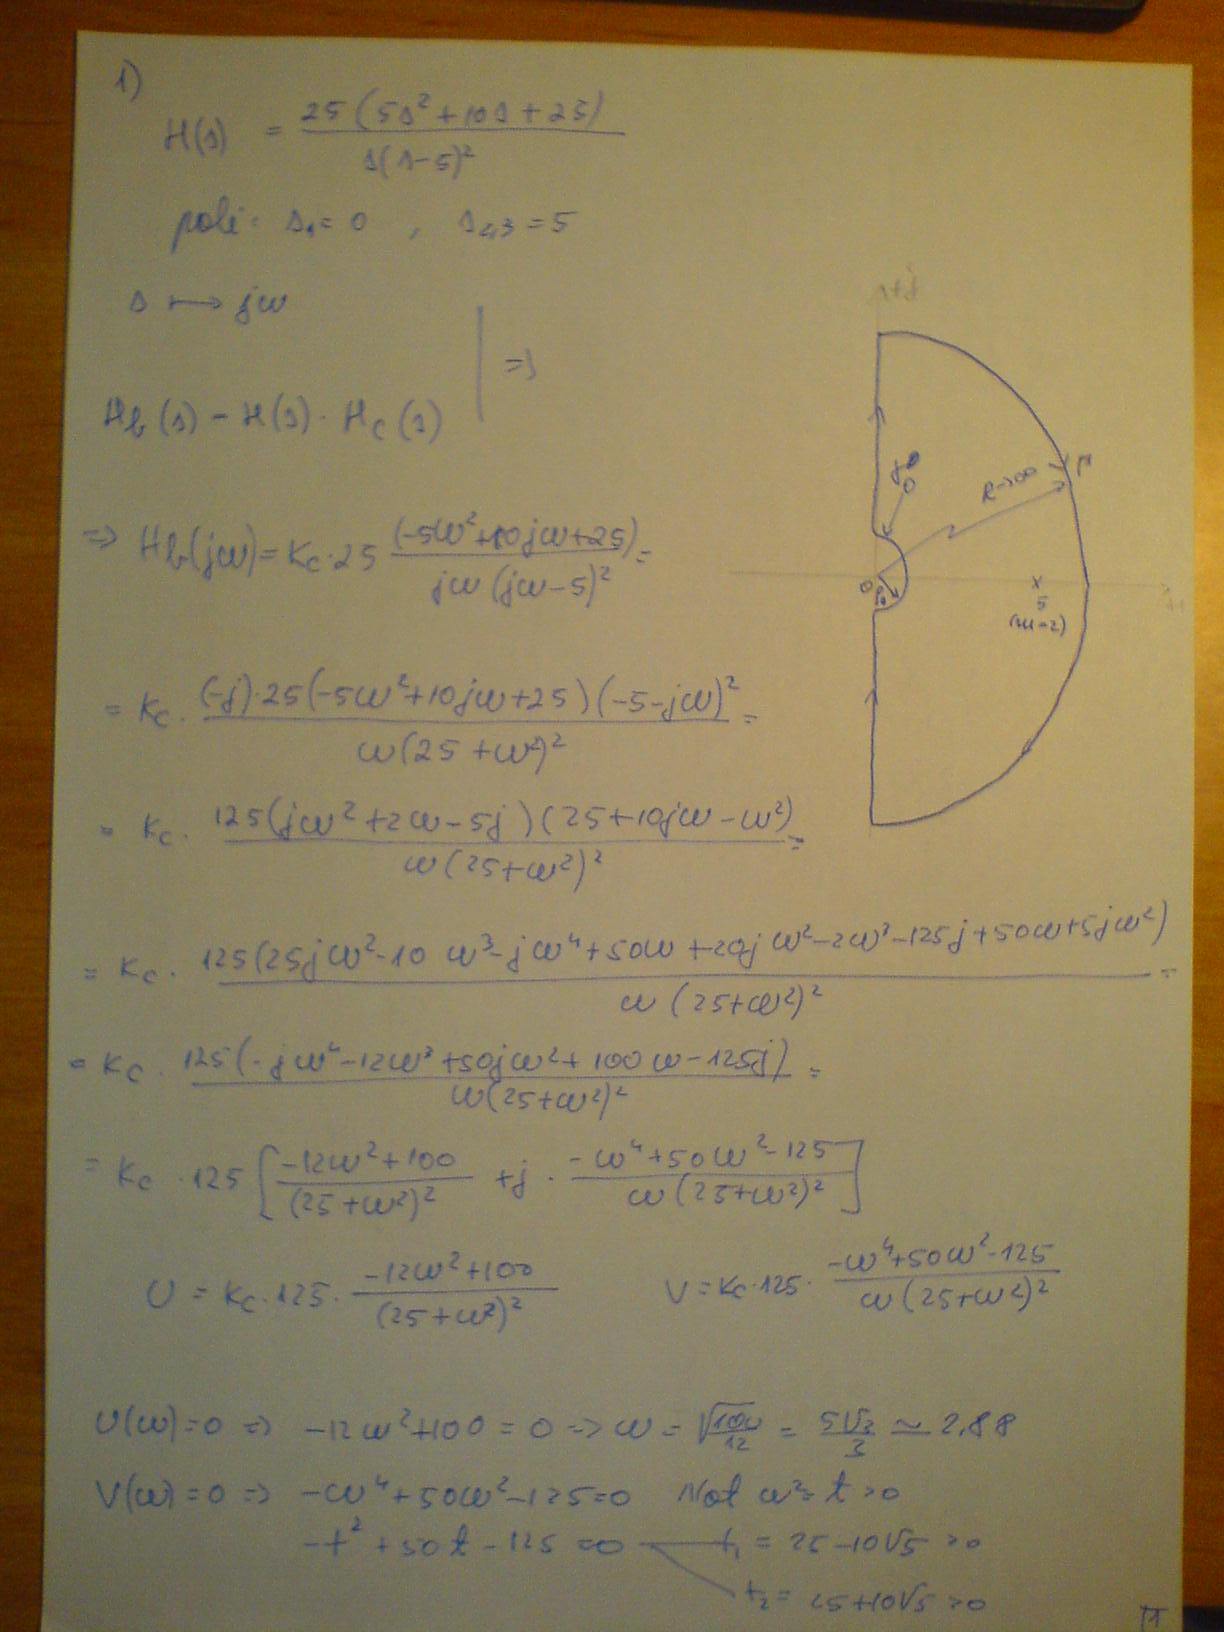 1)
H(s) = 25(5s²+10s+25) / s(s-5)²
poli: s₁=0 , s₂,₃=5
s ⟼ jω
=>
H_b(s) - H(s) · H_c(s)
=> H_b(jω) = K_C·25 (-5ω²+10jω+25) / jω(jω-5)² =
= K_C · (-j)·25(-5ω²+10jω+25)(-5-jω)² / ω(25+ω²)² =
= K_C · 125(jω²+2ω-5j)(25+10jω-ω²) / ω(25+ω²)² =
= K_C · 125(25jω²-10ω³-jω⁴+50ω+20jω²-2ω³-125j+50ω+5jω²) / ω(25+ω²)² =
= K_C · 125(-jω⁴-12ω³+50jω²+100ω-125j) / ω(25+ω²)² =
= K_C · 125 [ -12ω²+100 / (25+ω²)² + j · -ω⁴+50ω²-125 / ω(25+ω²)² ]
U = K_C·125· -12ω²+100 / (25+ω²)²
V = K_C·125· -ω⁴+50ω²-125 / ω(25+ω²)²
U(ω)=0 => -12ω²+100=0 => ω = √100/12 = 5√3/3 ≃ 2,88
V(ω)=0 => -ω⁴+50ω²-125=0 Not ω²=t>0
-t²+50t-125=0
t₁ = 25-10√5 >0
t₂ = 25+10√5 >0
+j
R→∞
Γ
0
x
5
(m=2)
1